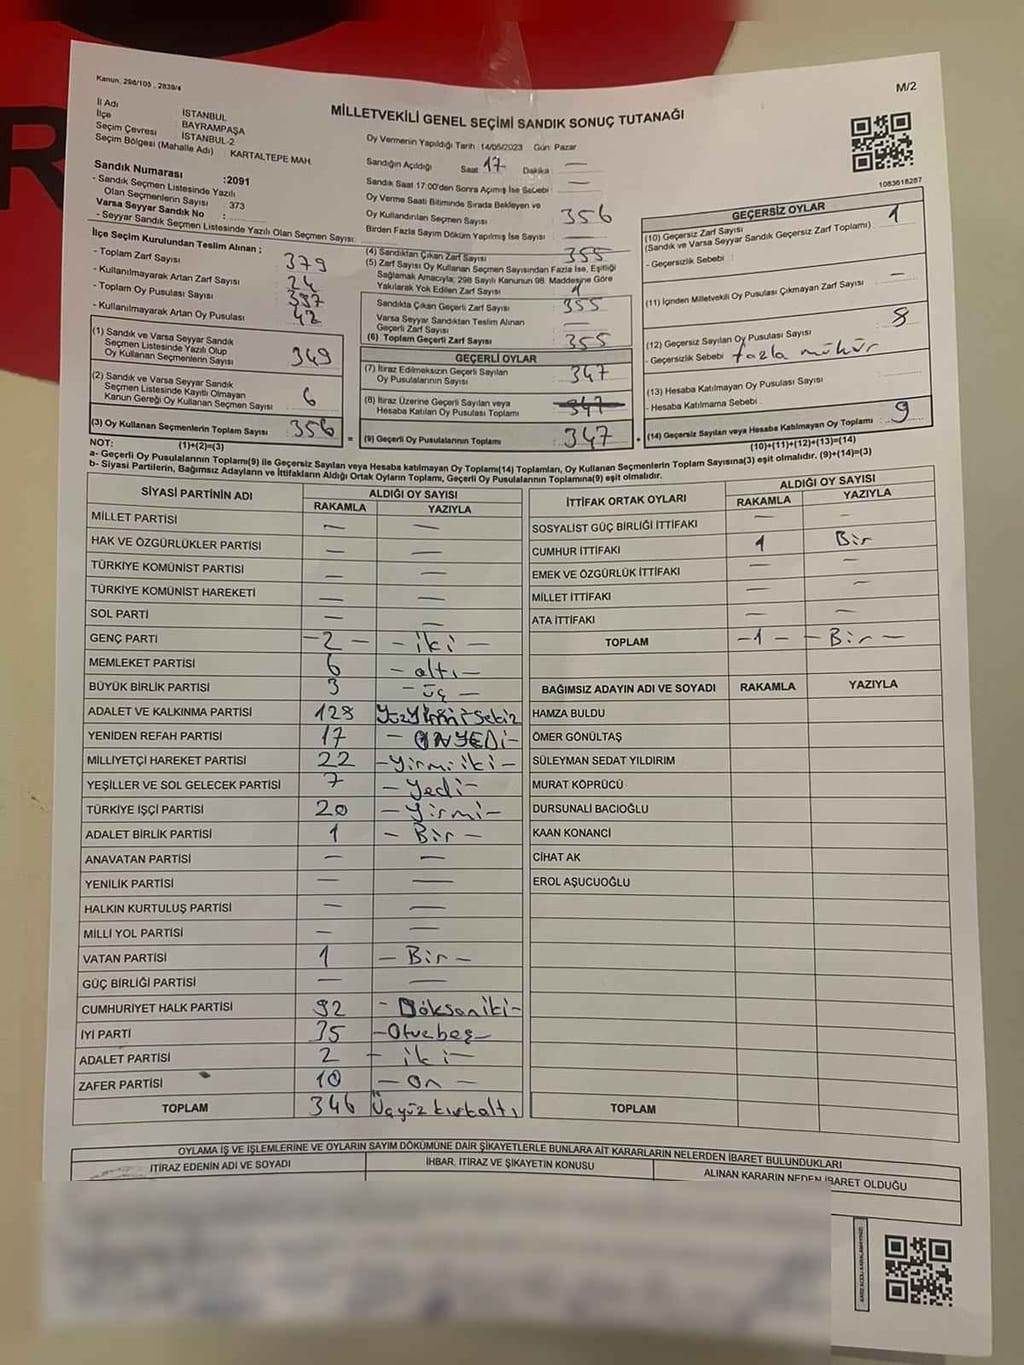 R
Kanun: 298/105 , 2839/4
M/2
MİLLETVEKİLİ GENEL SEÇİMİ SANDIK SONUÇ TUTANAĞI
İl Adı İSTANBUL
İlçe BAYRAMPAŞA
Seçim Çevresi İSTANBUL-2
Seçim Bölgesi (Mahalle Adı) KARTALTEPE MAH.
Sandık Numarası :2091
- Sandık Seçmen Listesinde Yazılı
Olan Seçmenlerin Sayısı : 373
Varsa Seyyar Sandık No :
- Seyyar Sandık Seçmen Listesinde Yazılı Olan Seçmen Sayısı:
İlçe Seçim Kurulundan Teslim Alınan ;
- Toplam Zarf Sayısı 379
- Kullanılmayarak Artan Zarf Sayısı 24
- Toplam Oy Pusulası Sayısı 397
- Kullanılmayarak Artan Oy Pusulası 42
(1) Sandık ve Varsa Seyyar Sandık
Seçmen Listesinde Yazılı Olup
Oy Kullanan Seçmenlerin Sayısı 349
(2) Sandık ve Varsa Seyyar Sandık
Seçmen Listesinde Kayıtlı Olmayan
Kanun Gereği Oy Kullanan Seçmen Sayısı 6
(3) Oy Kullanan Seçmenlerin Toplam Sayısı 356 =
Oy Vermenin Yapıldığı Tarih : 14/05/2023 Gün: Pazar
Sandığın Açıldığı Saat 17 Dakika : —
Sandık Saat 17:00'den Sonra Açılmış İse Sebebi : —
Oy Verme Saati Bitiminde Sırada Bekleyen ve
Oy Kullandırılan Seçmen Sayısı : 356
Birden Fazla Sayım Döküm Yapılmış İse Sayısı : —
(4) Sandıktan Çıkan Zarf Sayısı : 355
(5) Zarf Sayısı Oy Kullanan Seçmen Sayısından Fazla İse, Eşitliği
Sağlamak Amacıyla, 298 Sayılı Kanunun 98. Maddesine Göre
Yakılarak Yok Edilen Zarf Sayısı 1
Sandıkta Çıkan Geçerli Zarf Sayısı : 355
Varsa Seyyar Sandıktan Teslim Alınan
Geçerli Zarf Sayısı : —
(6) Toplam Geçerli Zarf Sayısı : 355
GEÇERLİ OYLAR
(7) İtiraz Edilmeksizin Geçerli Sayılan
Oy Pusulalarının Sayısı : 347
(8) İtiraz Üzerine Geçerli Sayılan veya
Hesaba Katılan Oy Pusulası Toplamı : 347
(9) Geçerli Oy Pusulalarının Toplamı : 347 +
1083618287
GEÇERSİZ OYLAR
(10) Geçersiz Zarf Sayısı : 1
(Sandık ve Varsa Seyyar Sandık Geçersiz Zarf Toplamı)
- Geçersizlik Sebebi :
(11) İçinden Milletvekili Oy Pusulası Çıkmayan Zarf Sayısı : —
(12) Geçersiz Sayılan Oy Pusulası Sayısı : 8
- Geçersizlik Sebebi : fazla mühür
(13) Hesaba Katılmayan Oy Pusulası Sayısı :
- Hesaba Katılmama Sebebi :
(14) Geçersiz Sayılan veya Hesaba Katılmayan Oy Toplamı : 9
(10)+(11)+(12)+(13)=(14)
NOT: (1)+(2)=(3)
a- Geçerli Oy Pusulalarının Toplamı(9) ile Geçersiz Sayılan veya Hesaba Katılmayan Oy Toplamı(14) Toplamları, Oy Kullanan Seçmenlerin Toplam Sayısına(3) eşit olmalıdır. (9)+(14)=(3)
b- Siyasi Partilerin, Bağımsız Adayların ve İttifakların Aldığı Ortak Oyların Toplamı, Geçerli Oy Pusulalarının Toplamına(9) eşit olmalıdır.
SİYASİ PARTİNİN ADI ALDIĞI OY SAYISI
RAKAMLA YAZIYLA
MİLLET PARTİSİ — —
HAK VE ÖZGÜRLÜKLER PARTİSİ — —
TÜRKİYE KOMÜNİST PARTİSİ — —
TÜRKİYE KOMÜNİST HAREKETİ — —
SOL PARTİ — —
GENÇ PARTİ -2- - iki -
MEMLEKET PARTİSİ 6 - altı -
BÜYÜK BİRLİK PARTİSİ 3 - üç -
ADALET VE KALKINMA PARTİSİ 128 Yüzyirmisekiz
YENİDEN REFAH PARTİSİ 17 - ONYEDİ -
MİLLİYETÇİ HAREKET PARTİSİ 22 - Yirmiiki -
YEŞİLLER VE SOL GELECEK PARTİSİ 7 - Yedi -
TÜRKİYE İŞÇİ PARTİSİ 20 - Yirmi -
ADALET BİRLİK PARTİSİ 1 - Bir -
ANAVATAN PARTİSİ — —
YENİLİK PARTİSİ — —
HALKIN KURTULUŞ PARTİSİ — —
MİLLİ YOL PARTİSİ — —
VATAN PARTİSİ 1 - Bir -
GÜÇ BİRLİĞİ PARTİSİ — —
CUMHURİYET HALK PARTİSİ 92 - Doksaniki -
İYİ PARTİ 35 - Otuzbeş -
ADALET PARTİSİ 2 - iki -
ZAFER PARTİSİ 10 - On -
TOPLAM 346 Üçyüzkırkaltı
İTTİFAK ORTAK OYLARI ALDIĞI OY SAYISI
RAKAMLA YAZIYLA
SOSYALİST GÜÇ BİRLİĞİ İTTİFAKI — —
CUMHUR İTTİFAKI 1 Bir
EMEK VE ÖZGÜRLÜK İTTİFAKI — —
MİLLET İTTİFAKI — —
ATA İTTİFAKI — —
TOPLAM -1- - Bir -
BAĞIMSIZ ADAYIN ADI VE SOYADI RAKAMLA YAZIYLA
HAMZA BULDU
ÖMER GÖNÜLTAŞ
SÜLEYMAN SEDAT YILDIRIM
MURAT KÖPRÜCÜ
DURSUNALİ BACIOĞLU
KAAN KONANCİ
CİHAT AK
EROL AŞUCUOĞLU
TOPLAM
OYLAMA İŞ VE İŞLEMLERİNE VE OYLARIN SAYIM DÖKÜMÜNE DAİR ŞİKAYETLERLE BUNLARA AİT KARARLARIN NELERDEN İBARET BULUNDUKLARI
İTİRAZ EDENİN ADI VE SOYADI İHBAR, İTİRAZ VE ŞİKAYETİN KONUSU ALINAN KARARIN NEDEN İBARET OLDUĞU